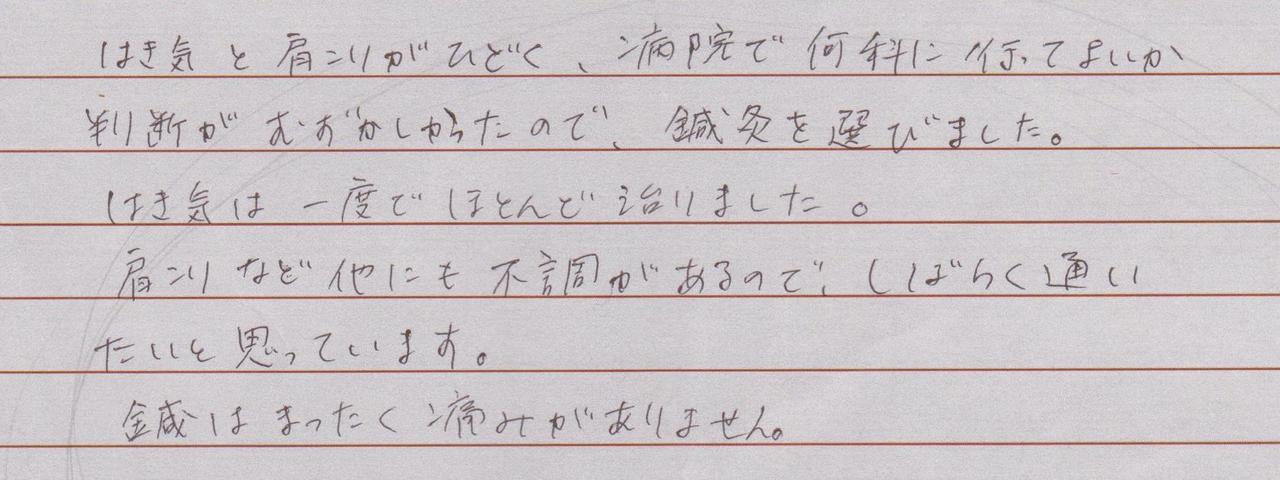 はき気と肩こりがひどく、病院で何科に行ってよいか
判断がむずかしかったので、鍼灸を選びました。
はき気は一度でほとんど治りました。
肩こりなど他にも不調があるので、しばらく通い
たいと思っています。
鍼はまったく痛みがありません。